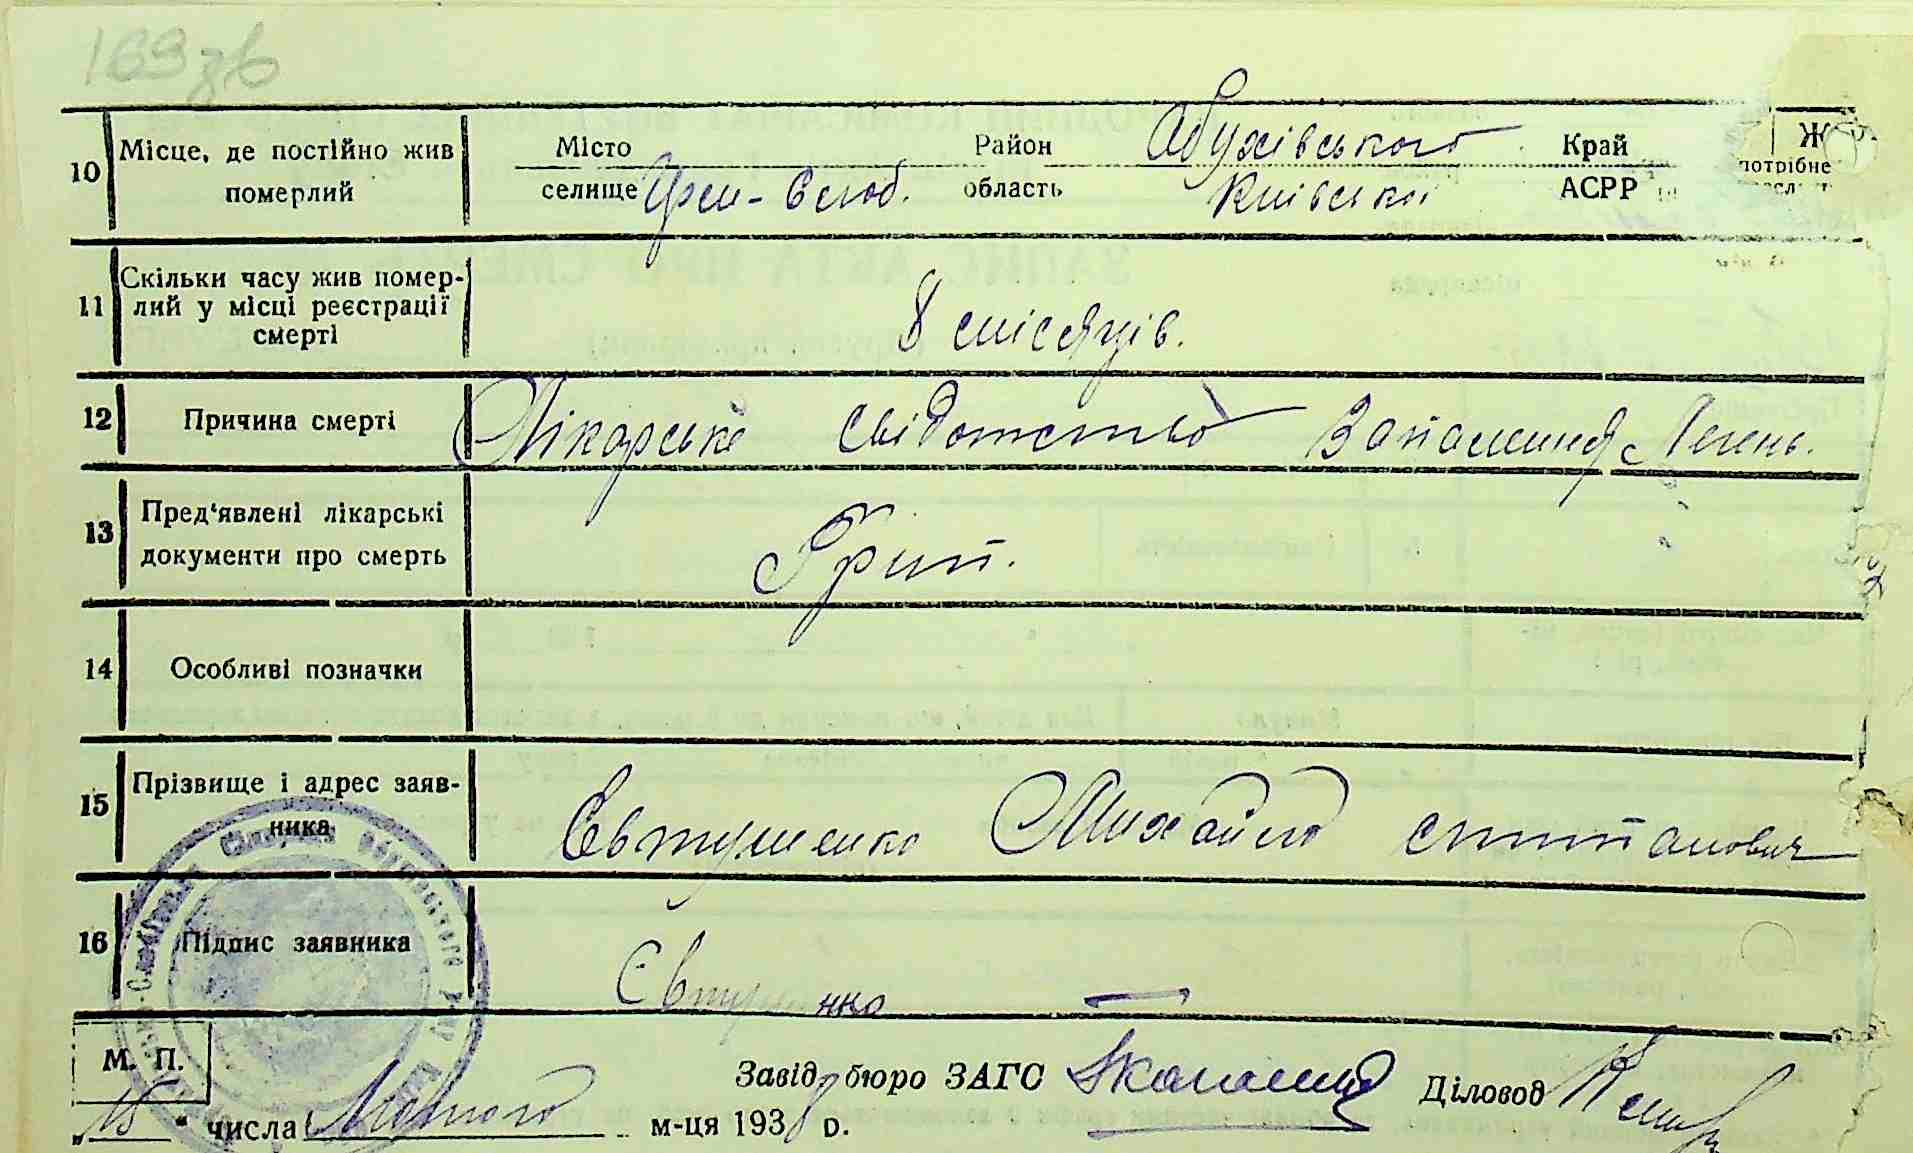 169 зв
10 Місце, де постійно жив померлий
Місто
селище
Район Абухівського
область Київська
Край
АСРР
Ж
потрібне
11 Скільки часу жив помер-
лий у місці реєстрації
смерті
8 місяців.
12 Причина смерті Лікарське свідотство Запаління Легень.
13 Пред'явлені лікарські
документи про смерть
Грип.
14 Особливі позначки
15 Прізвище і адрес заяв-
ника
Євтушенко Михайло
16 Підпис заявника
М. П.
Завід. бюро ЗАГС
Діловод
„15“ числа Лютого м-ця 1938 р.